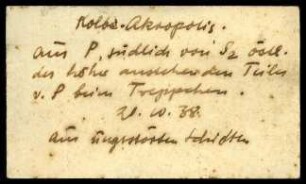 Kolbe-Akropolis.
aus P, südlich von S2 östl.
des höher anstehenden Teiles
v. P beim Treppchen.
21.10.38
aus ungestörten Schichten